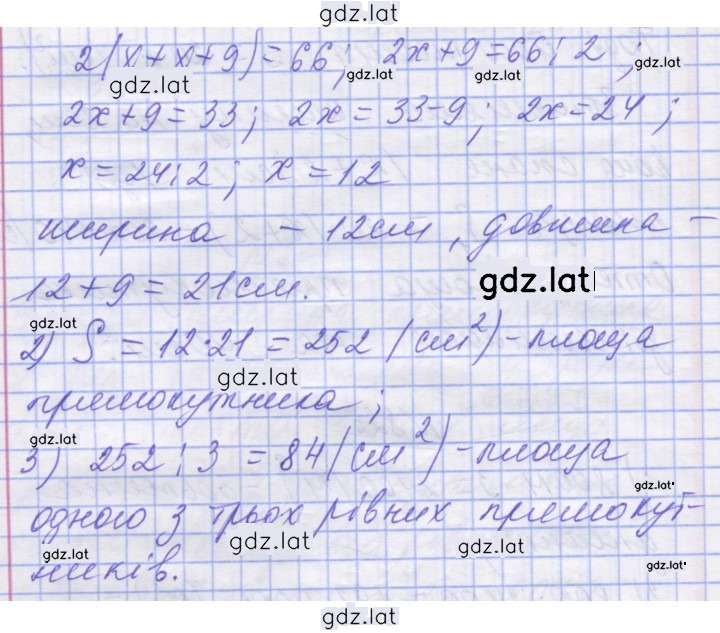 gdz.lat
2(x+x+9)=66; 2x+9=66:2;
gdz.lat gdz.lat
2x+9=33; 2x=33-9; 2x=24;
x=24:2; x=12
ширина - 12см, довшина -
12+9=21см. gdz.lat
gdz.lat
2) S=12·21=252 (см²)-площа
gdz.lat
прямокутника;
gdz.lat
3) 252:3=84(см²)-площа
gdz.lat
одного з трьох рівних прямокут-
gdz.lat gdz.lat
gdz.lat ників. gdz.lat
gdz.lat